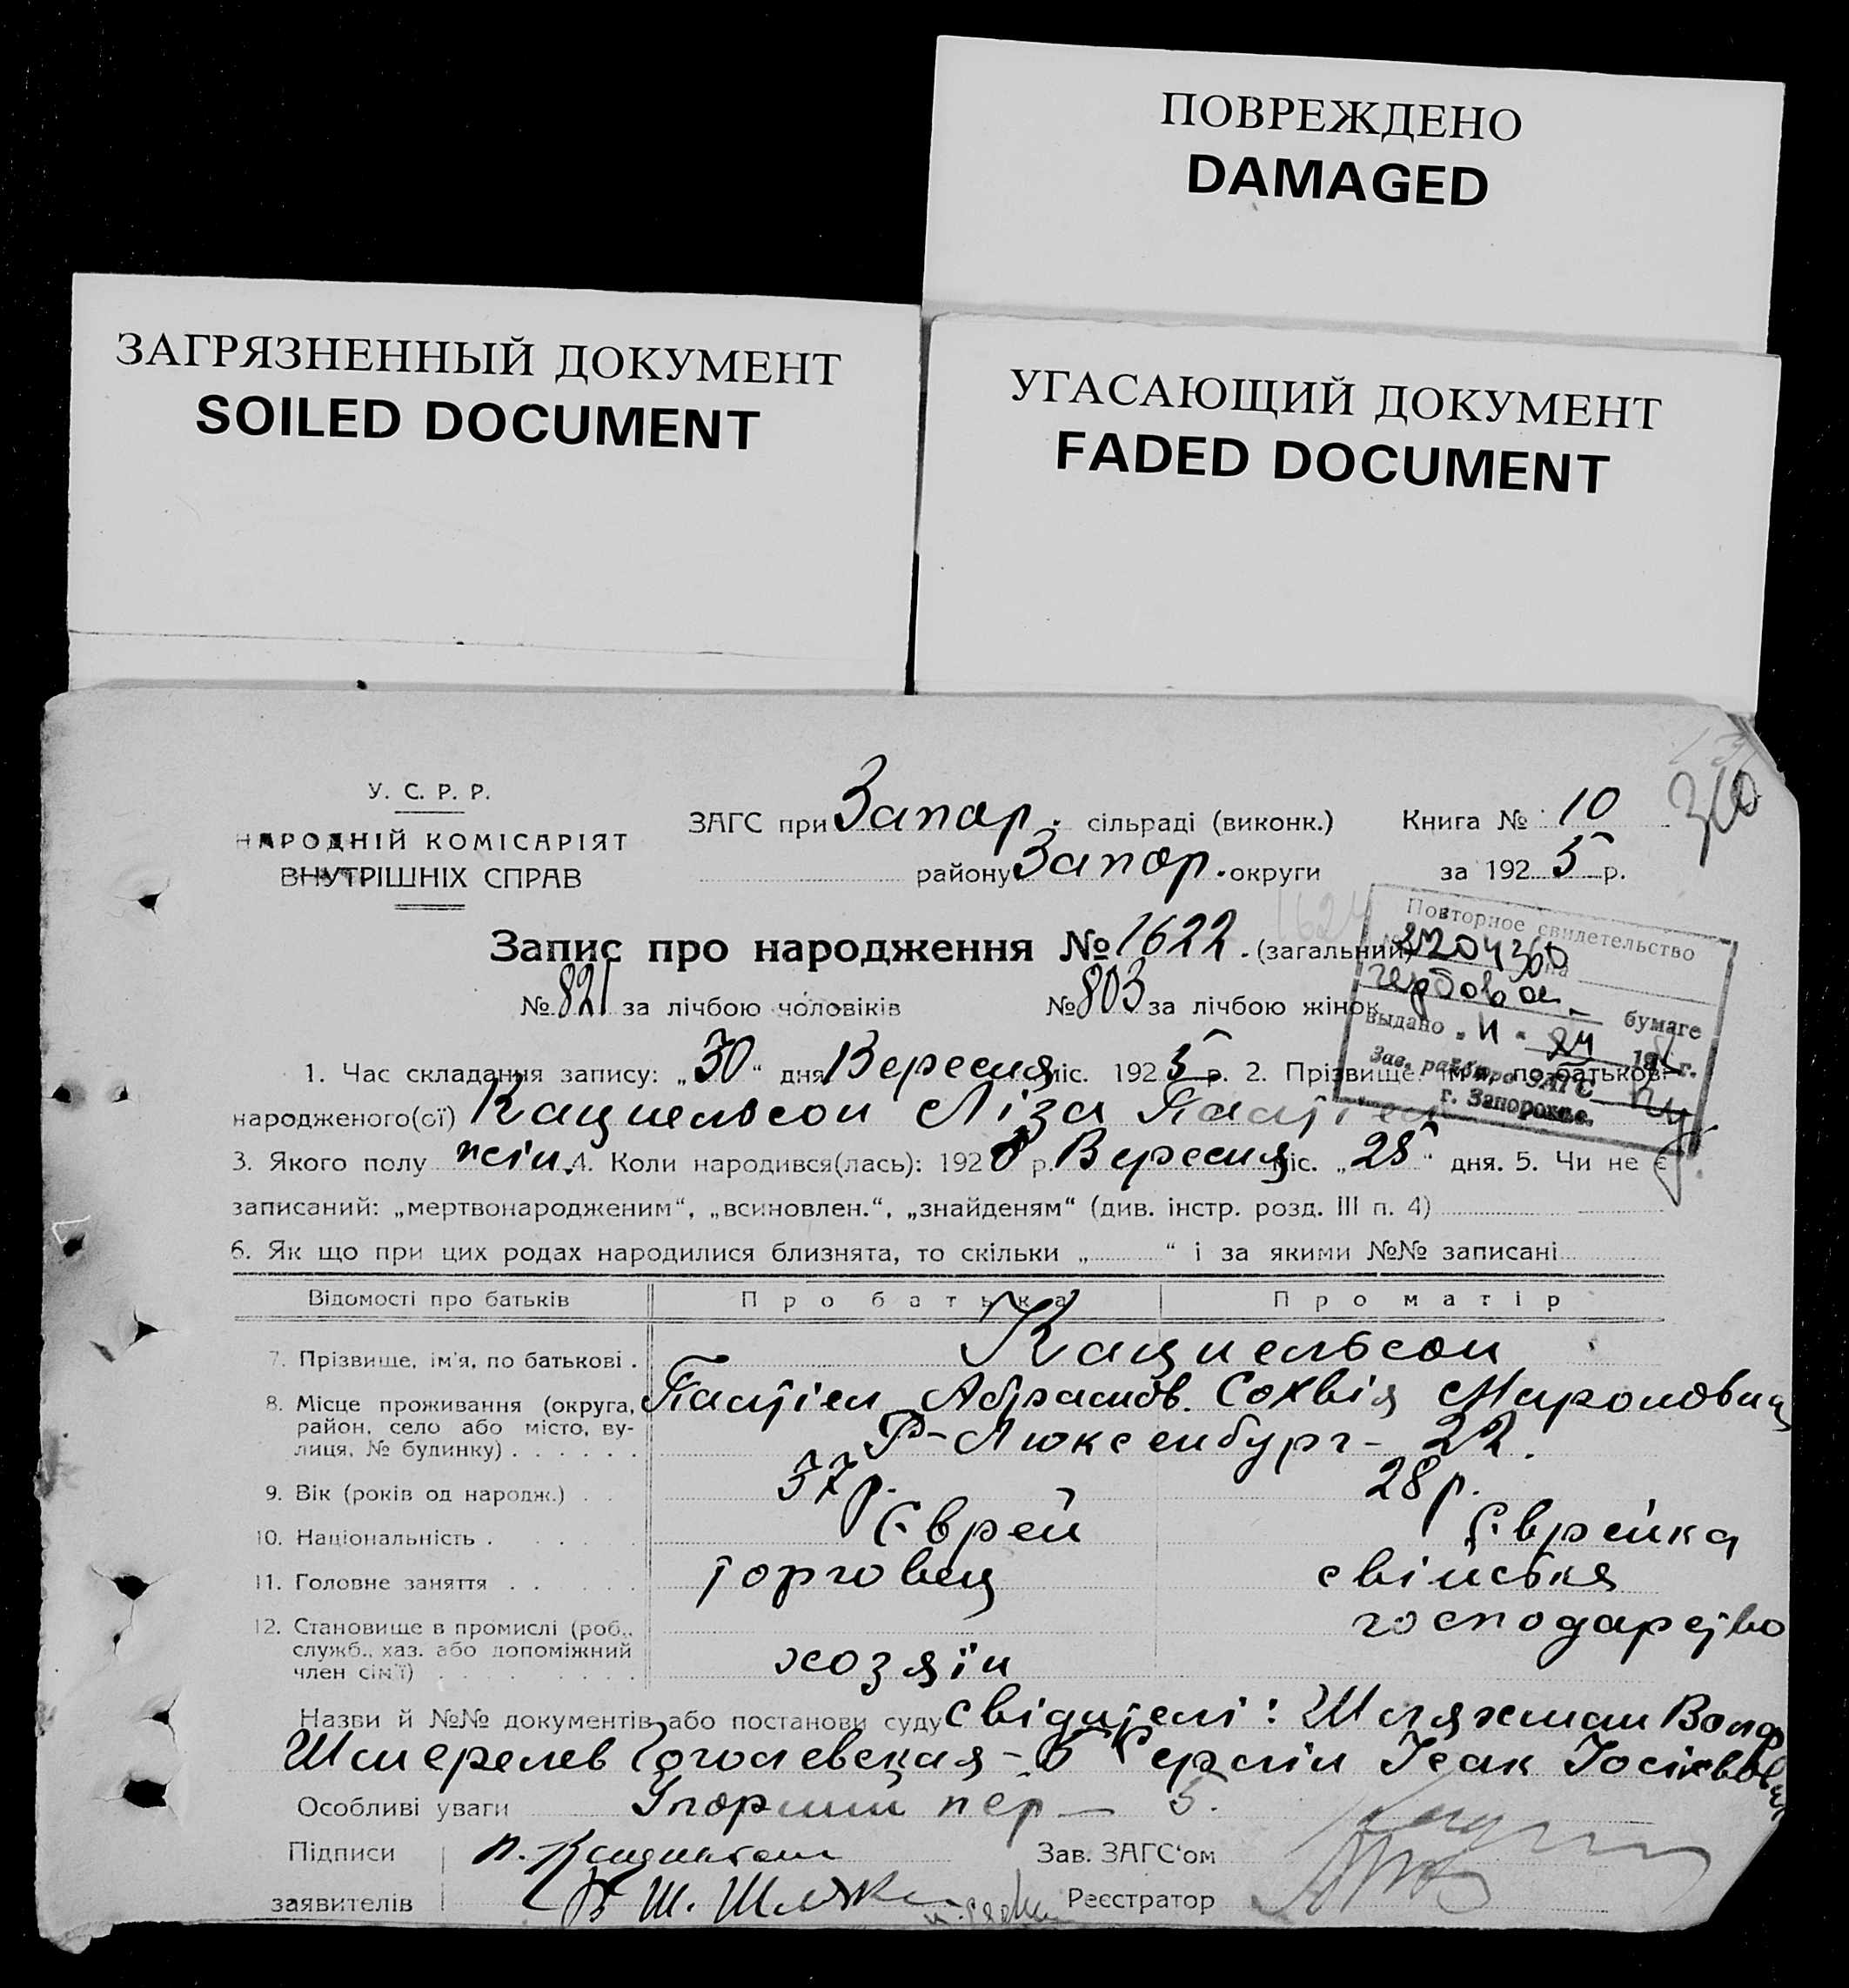 ПОВРЕЖДЕНО
DAMAGED
ЗАГРЯЗНЕННЫЙ ДОКУМЕНТ
SOILED DOCUMENT
УГАСАЮЩИЙ ДОКУМЕНТ
FADED DOCUMENT
У. С. Р. Р.
НАРОДНІЙ КОМІСАРІЯТ
ВНУТРІШНІХ СПРАВ
ЗАГС при Запор. сільраді (виконк.) Книга № 10
району Запор. округи за 1925 р.
Запис про народження № 1622. (загальний)
№ 821 за лічбою чоловіків № 803 за лічбою жінок
Повторное свидетельство
2204360 на
гербовой бумаге
Выдано "11"
Зав. райбюро ЗАГС
г. Запорожье.
1. Час складання запису: „30“ дня Вересня міс. 1925 р. 2. Прізвище, ім'я, по батькові
народженого(ої) Кацнельсон Ліза
3. Якого полу жін. 4. Коли народився(лась): 192 р. Вересня міс. „25“ дня. 5. Чи не є
записаний: „мертвонародженим“, „всиновлен.“, „знайденям“ (див. інстр. розд. III п. 4)
6. Як що при цих родах народилися близнята, то скільки „ “ і за якими №№ записані
Відомості про батьків Про батька Про матір
7. Прізвище, ім'я, по батькові . Кацнельсон
8. Місце проживання (округа, район, село або місто, вулиця, № будинку) Абрамов. Миронівна
Р-Люксенбург- 22.
9. Вік (років од народж.) 37 р. 28 р.
10. Національність . Єврей Єврейка
11. Головне заняття торговец свійське
господарство
12. Становище в промислі (роб.,
служб., хаз. або допоміжний
член сім'ї) хозяїн
Назви й №№ документів або постанови суду свідителі: Шляхман Вольф
Шмерелев Гоголевская - Ісак Іосіфович
Особливі уваги пер - 5.
Підписи Зав. ЗАГС'ом
заявителів Реєстратор